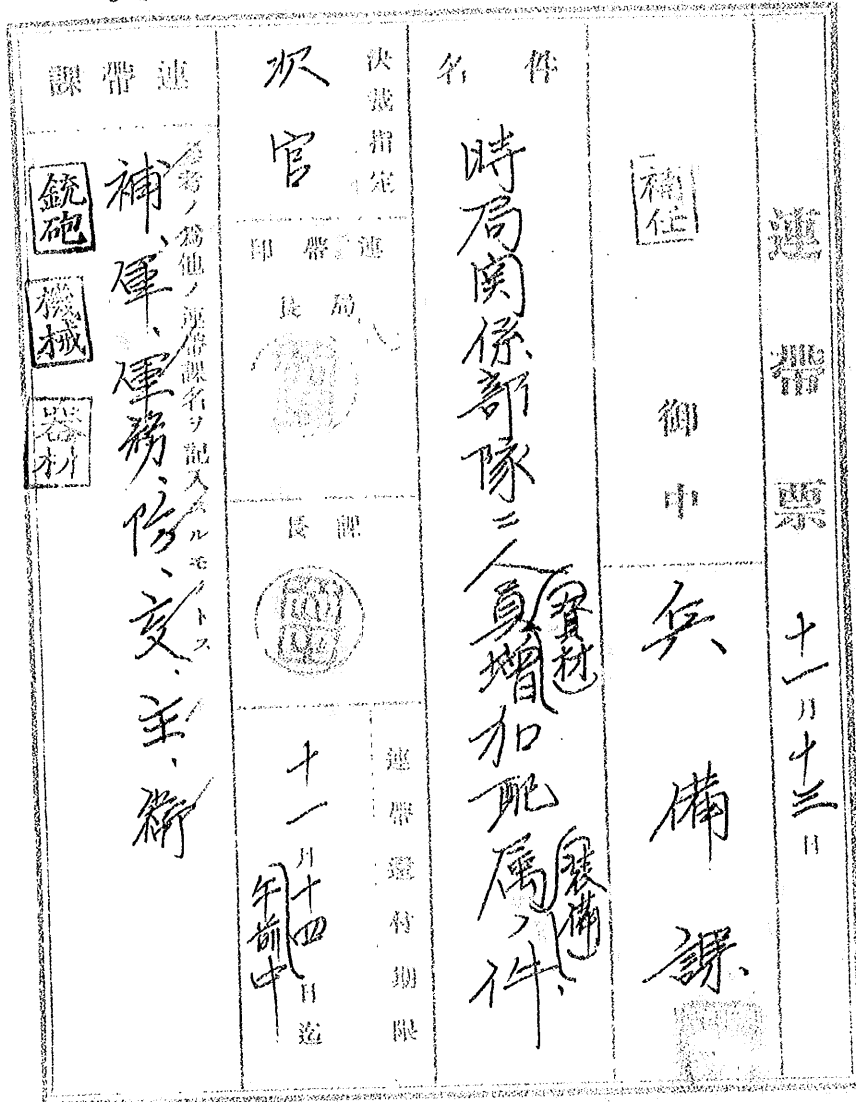 連帶票 十一月十三日
補任 御中
兵備課
件名
時局関係部隊ニ人員(資材)増加配属(装備)ノ件
決裁指定
次官
連帶印
局長
課長
連帶還付期限
十一月十四日迄
午前中
連帶課
參考ノ爲他ノ連帶課名ヲ記入スルモノトス
補、軍、軍務、防、交、主、衛
銃砲
機械
器材